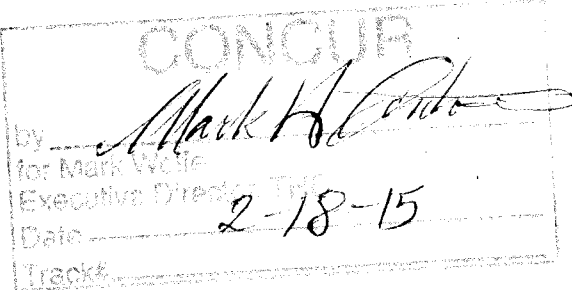 CONCUR
by Mark H
for Mark Wolfe
Executive Director, THC
Date 2-18-15
Track#